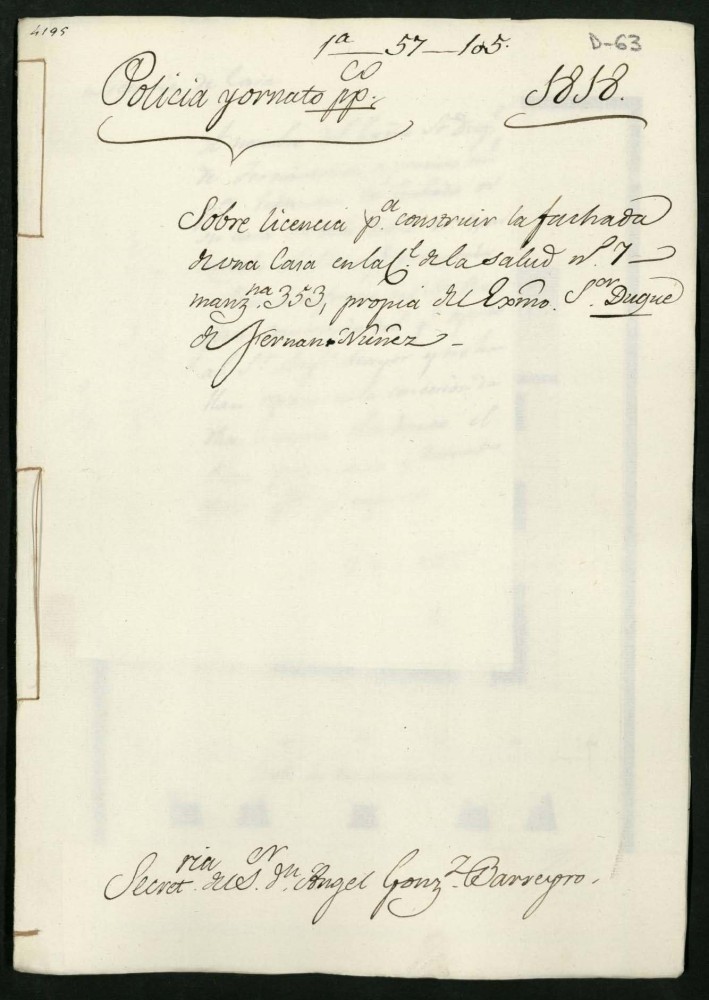 4195
1ª — 57 — 105.
D-63
Policia y ornato pp.co
1818.
Sobre licencia p.a construir la fachada
de una Casa en la C.l de la Salud n.o 7
manz.na 353, propia del Exmo. S.or Duque
de Fernan-Nuñez
Secret.ria del S.r Dn. Angel Gonz.z Barreyro.